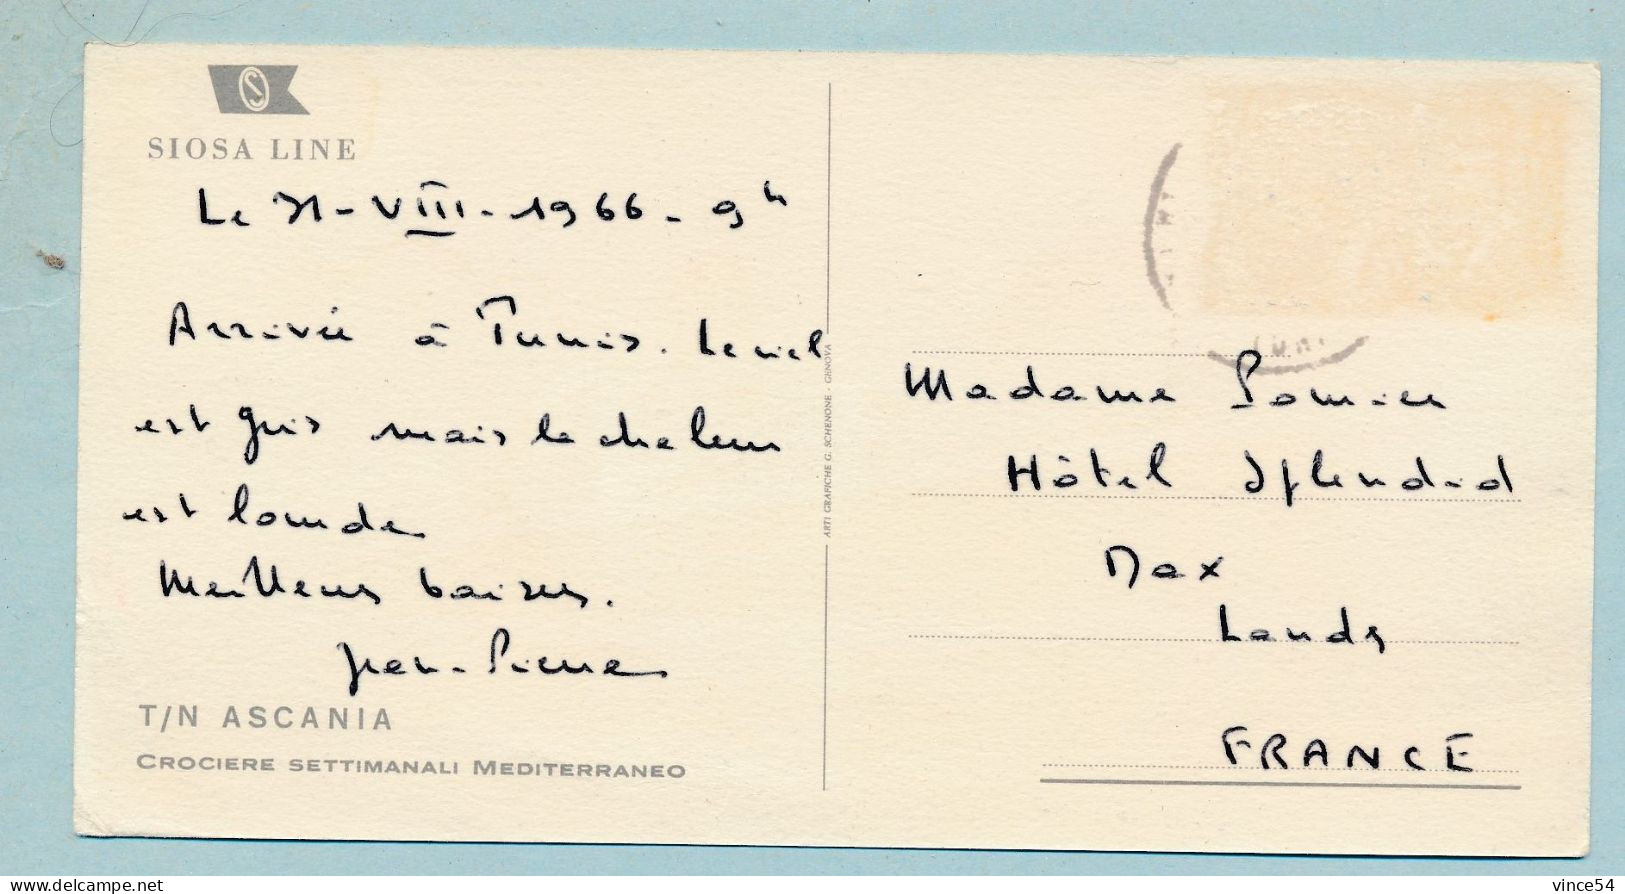 SIOSA LINE
Le 31-VIII-1966-9h
Arrivée à Tunis. Le ciel
est gris mais la chaleur
est lourde
Meilleurs baisers.
Jean-Pierre
T/N ASCANIA
CROCIERE SETTIMANALI MEDITERRANEO
ARTI GRAFICHE G. SCHENONE - GENOVA
Madame Pomier
Hôtel Splendid
Dax
Landes
FRANCE
vince54